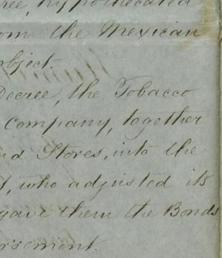 hypothecated
the Mexican
Decree, the Tobacco
Company, together
Stores, into the
who adjusted its
gave them the Bonds